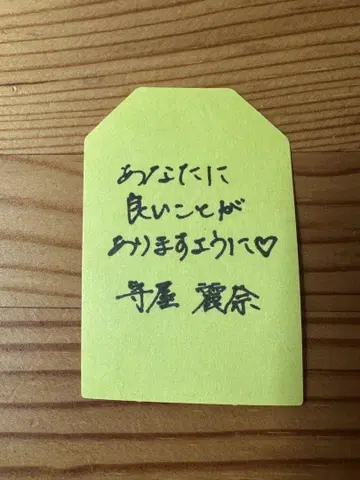 あなたに
良いことが
ありますように♡
寺屋 麗奈